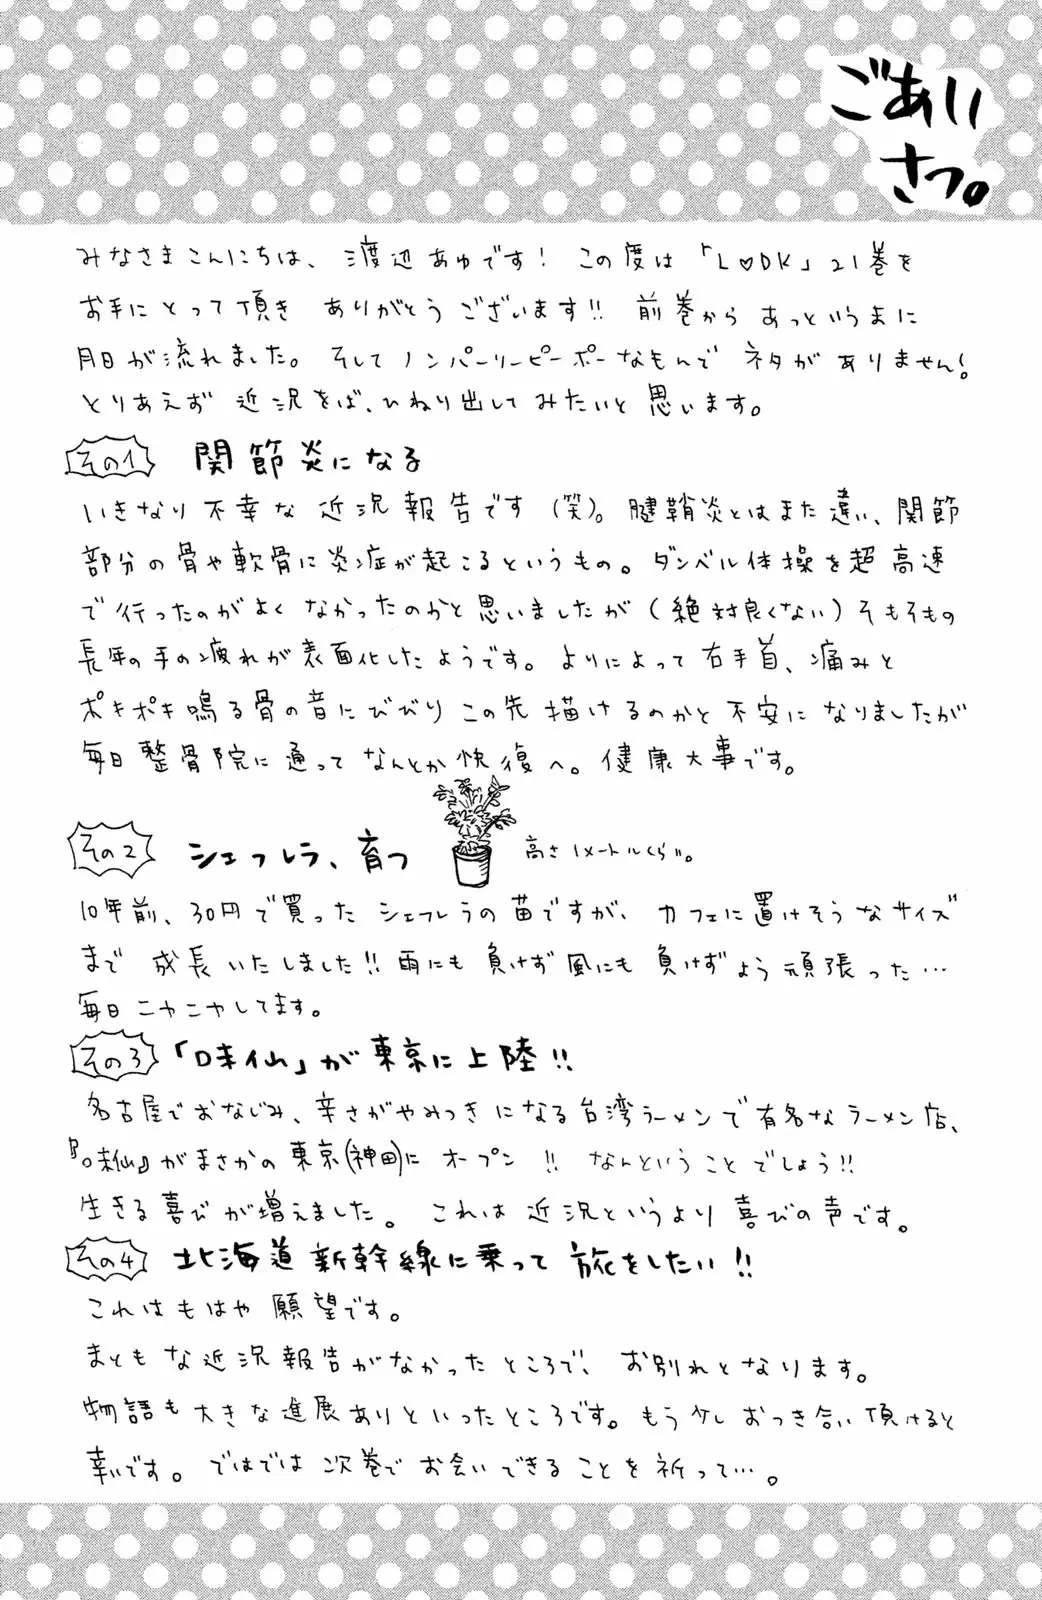 ごあい
さつ。
みなさまこんにちは、渡辺あゆです！この度は「L♡DK」21巻を
お手にとって頂き ありがとうございます!! 前巻から あっというまに
月日が流れました。そしてノンパーリーピーポーなもんで ネタがありません！
とりあえず 近況をば、ひねり出してみたいと思います。
その1 関節炎になる
いきなり不幸な近況報告です（笑）。腱鞘炎とはまた違い、関節
部分の骨や軟骨に炎症が起こるというもの。ダンベル体操を超高速
で行ったのがよくなかったのかと思いましたが（絶対良くない）そもそもの
長年の手の疲れが表面化したようです。よりによって右手首、痛みと
ポキポキ鳴る骨の音にびびりこの先描けるのかと不安になりましたが
毎日整骨院に通ってなんとか快復へ。健康大事です。
その2 シェフレラ、育つ 高さ1メートルくらい。
10年前、30円で買ったシェフレラの苗ですが、カフェに置けそうなサイズ
まで成長いたしました!! 雨にも負けず風にも負けずよう頑張った…
毎日ニヤニヤしてます。
その3 「味仙」が東京に上陸!!
名古屋でおなじみ、辛さがやみつきになる台湾ラーメンで有名なラーメン店、
『味仙』がまさかの東京(神田)にオープン!! なんということでしょう!!
生きる喜びが増えました。これは近況というより喜びの声です。
その4 北海道新幹線に乗って旅をしたい!!
これはもはや願望です。
まともな近況報告がなかったところで、お別れとなります。
物語も大きな進展ありといったところです。もう少しおつき合い頂けると
幸いです。ではでは次巻でお会いできることを祈って…。